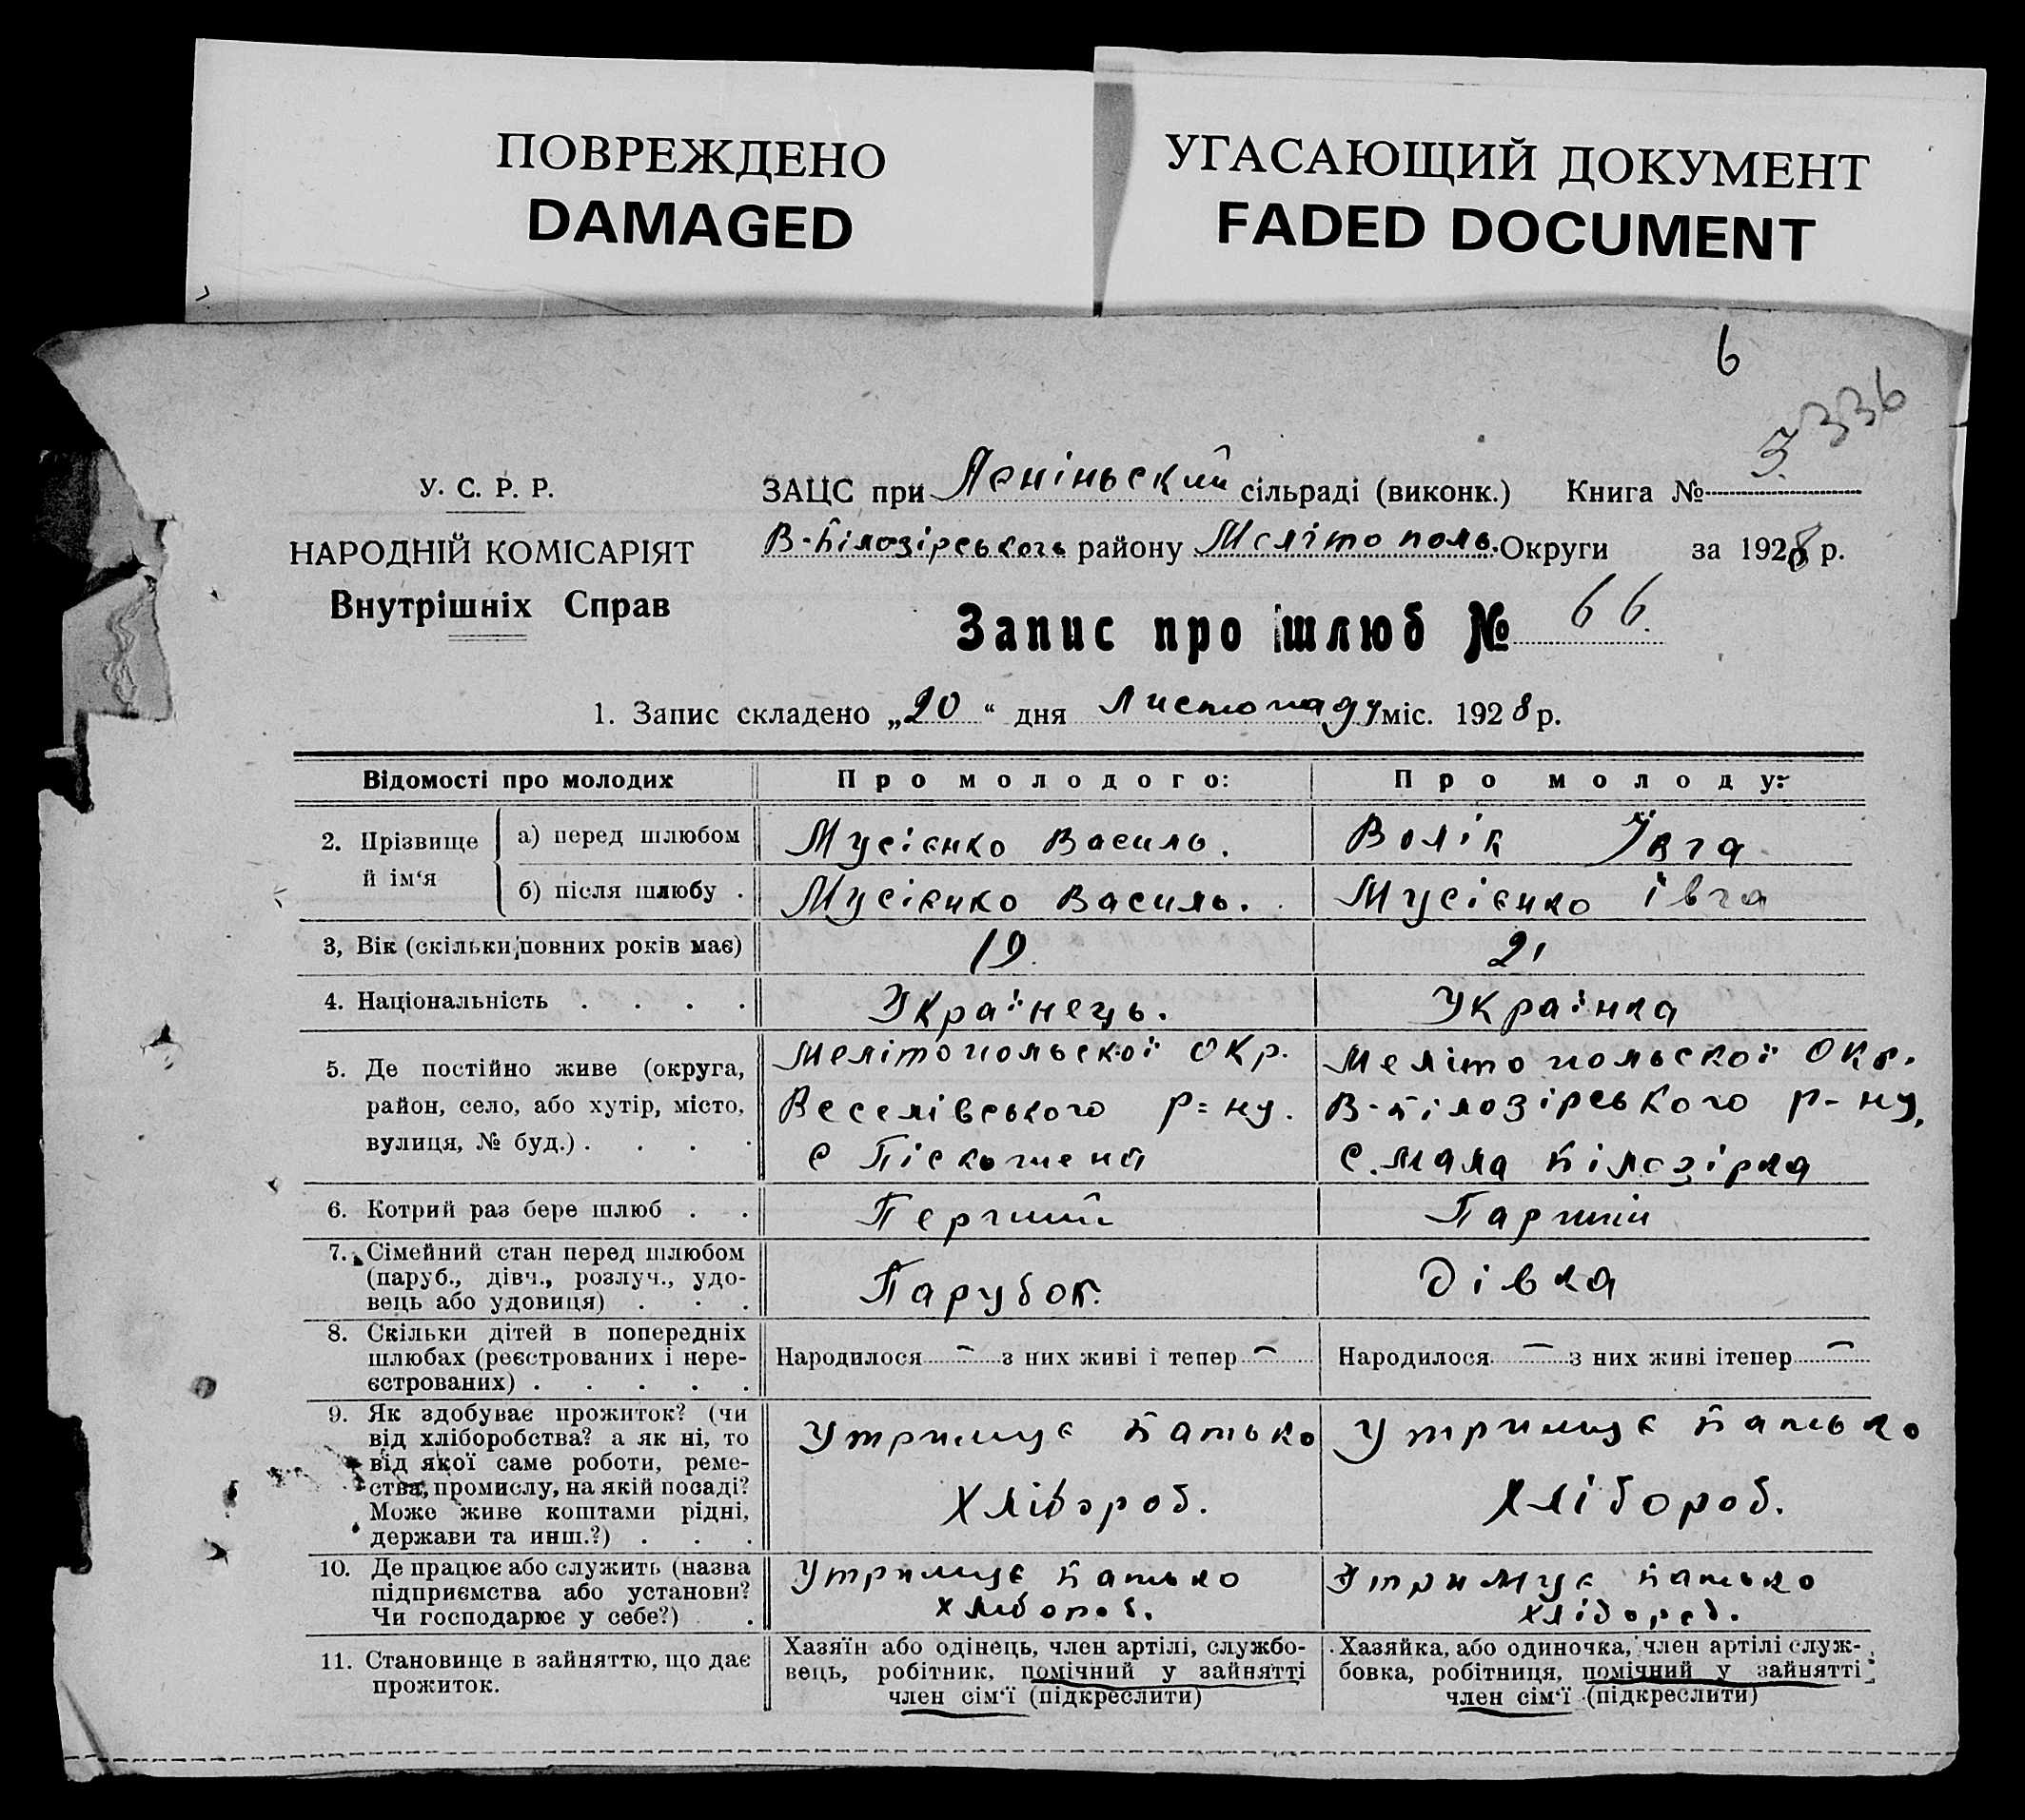 ПОВРЕЖДЕНО
DAMAGED
УГАСАЮЩИЙ ДОКУМЕНТ
FADED DOCUMENT
6
336
У. С. Р. Р.
НАРОДНІЙ КОМІСАРІЯТ
Внутрішніх Справ
ЗАЦС при Леніньский сільраді (виконк.) Книга № 3.
В-Білозірського району Меліто поль. Округи за 1928 р.
Запис про шлюб № 66.
1. Запис складено „20“ дня Листопаду міс. 1928 р.
Відомості про молодих Про молодого: Про молоду:
2. Прізвище й ім‘я а) перед шлюбом Мусієнко Василь. Волік Івга
б) після шлюбу . Мусієнко Василь. Мусієнко Івга
3, Вік (скільки повних років має) 19. 21
4. Національність . . . . Українець. Українка
5. Де постійно живе (округа, Мелітопольської Окр. Мелітопольської Окр.
район, село, або хутір, місто, Веселівського р=ну. В-Білозірського р-ну,
вулиця, № буд.) . . . . с Піскошена с. Мала Білозірка
6. Котрий раз бере шлюб . . Перший Парший
7. Сімейний стан перед шлюбом
(паруб., дівч., розлуч., удо-
вець або удовиця) . . . Парубок. Дівка
8. Скільки дітей в попередніх
шлюбах (реєстрованих і нере- Народилося — з них живі і тепер — Народилося — з них живі ітепер —
єстрованих) . . . . .
9. Як здобуває прожиток? (чи
від хліборобства? а як ні, то Утримує Батько Утримує Батько
від якої саме роботи, реме-
ства, промислу, на якій посаді? Хлібороб. Хлібороб.
Може живе коштами рідні,
держави та инш.?) . . .
10. Де працює або служить (назва Утримує Батько Утримує Батько
підприємства або установи? хлібороб. хлібороб.
Чи господарює у себе?) .
11. Становище в зайняттю, що дає прожиток.
Хазяїн або одінець, член артілі, службо-
вець, робітник, помічний у зайнятті
член сім‘ї (підкреслити)
Хазяйка, або одиночка, член артілі служ-
бовка, робітниця, помічний у зайнятті
член сім‘ї (підкреслити)